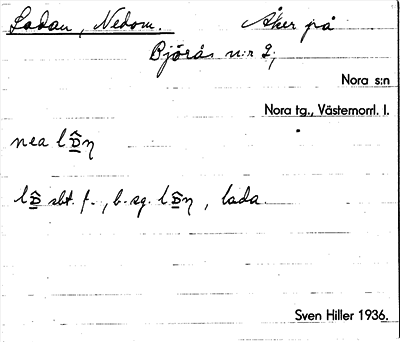 Ladan, Nedom. Åker på
Björås n:r 2;
Nora s:n
Nora tg., Västernorrl. l.
nea
sbt. f., b. sg. , lada.
Sven Hiller 1936.